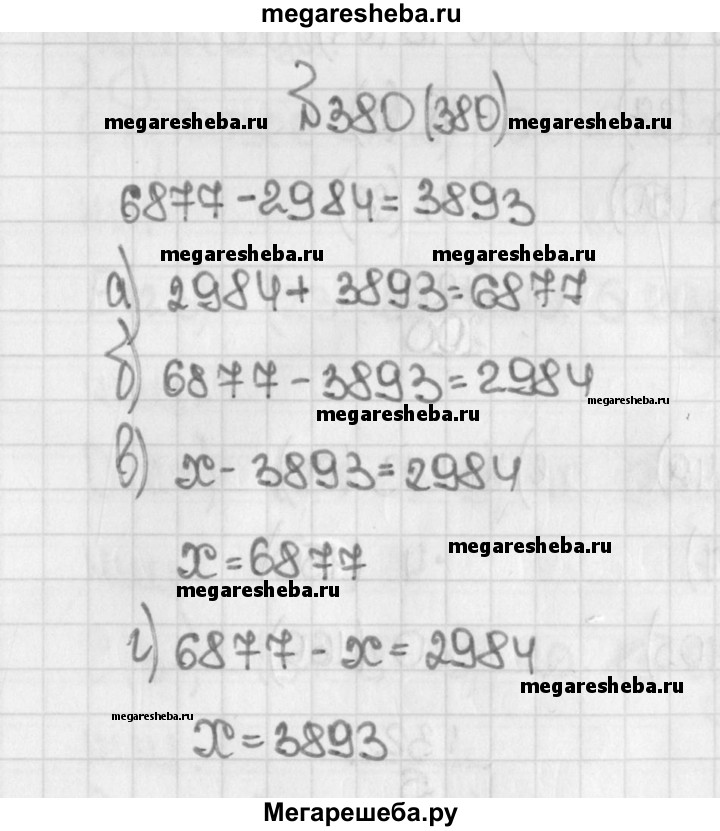 megaresheba.ru
№380(380)
megaresheba.ru megaresheba.ru
6877-2984=3893
megaresheba.ru megaresheba.ru
а) 2984+3893=6877
б) 6877-3893=2984
megaresheba.ru megaresheba.ru
в) x-3893=2984
x=6877 megaresheba.ru
megaresheba.ru
г) 6877-x=2984
megaresheba.ru
megaresheba.ru
x=3893
Мегарешеба.ру